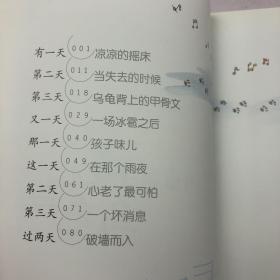 有一天 001 凉凉的摇床
第二天 011 当失去的时候
第三天 018 乌龟背上的甲骨文
又一天 029 一场冰雹之后
那一天 040 孩子味儿
这一天 049 在那个雨夜
第二天 061 心老了最可怕
第三天 071 一个坏消息
过两天 080 破墙而入